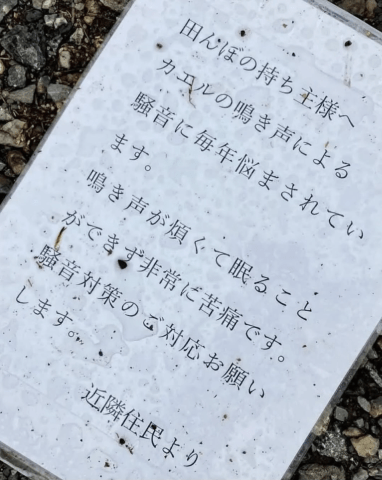 田んぼの持ち主様へ
カエルの鳴き声による
騒音に毎年悩まされてい
ます。
鳴き声が煩くて眠ること
ができず非常に苦痛です。
騒音対策のご対応お願い
します。
近隣住民より